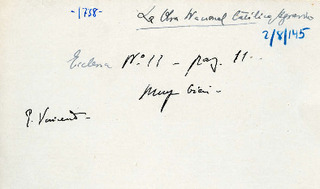 -1738-
La Obra Nacional Católico Agraria
2/8/145
Eclesia Nº 13 - pag. 11-
Muy bien-
P. Vicente-